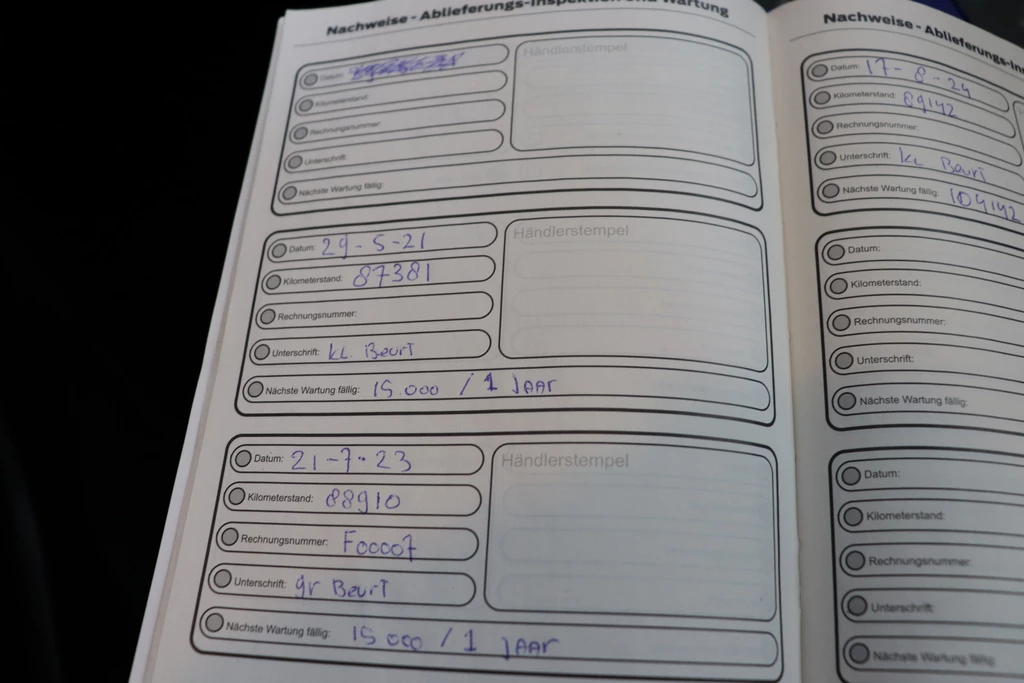 Nachweise - Ablieferungs-Inspektion und Wartung
Datum:
Kilometerstand:
Rechnungsnummer:
Unterschrift:
Nächste Wartung fällig:
Händlerstempel
Datum: 29-5-21
Kilometerstand: 87381
Rechnungsnummer:
Unterschrift: kl. Beurt
Nächste Wartung fällig: 15.000 / 1 JAAr
Händlerstempel
Datum: 21-7-23
Kilometerstand: 88910
Rechnungsnummer: F00007
Unterschrift: gr Beurt
Nächste Wartung fällig: 15 000 / 1 JAAr
Händlerstempel
Nachweise - Ablieferungs-In
Datum: 17-8-24
Kilometerstand: 89142
Rechnungsnummer:
Unterschrift: kl Beurt
Nächste Wartung fällig: 104142
Datum:
Kilometerstand:
Rechnungsnummer:
Unterschrift:
Nächste Wartung fällig:
Datum:
Kilometerstand:
Rechnungsnummer:
Unterschrift:
Nächste Wartung fällig: